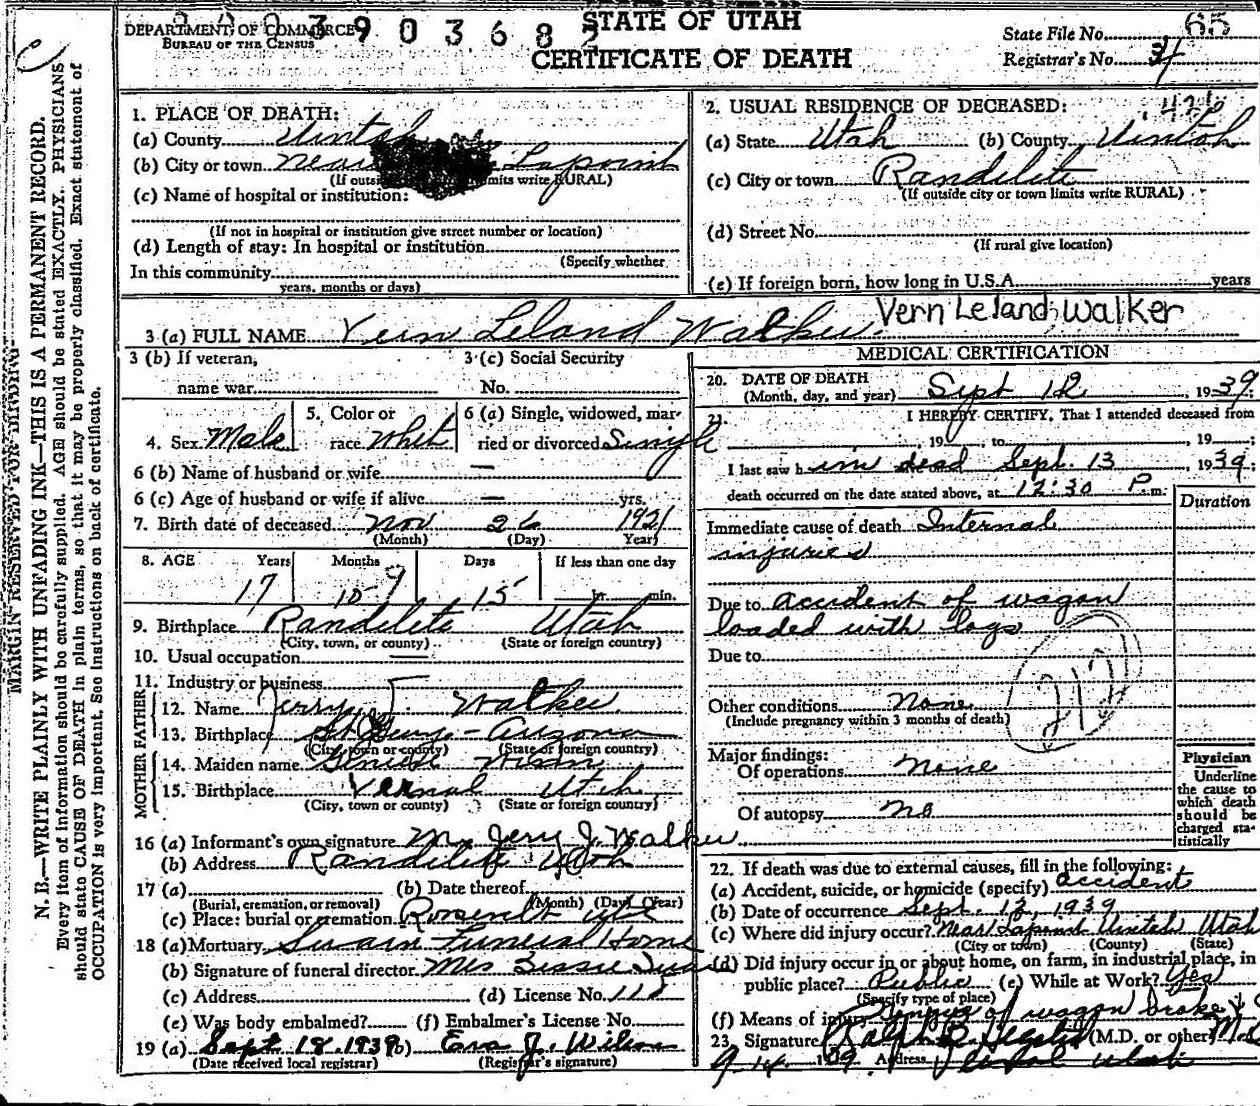 DEPARTMENT OF COMMERCE
BUREAU OF THE CENSUS
3 9 0 3 6 8 2
STATE OF UTAH
CERTIFICATE OF DEATH
State File No. 65
Registrar's No. 34
MARGIN RESERVED FOR BINDING
N. B.—WRITE PLAINLY WITH UNFADING INK—THIS IS A PERMANENT RECORD.
Every item of information should be carefully supplied. AGE should be stated EXACTLY. PHYSICIANS
should state CAUSE OF DEATH in plain terms, so that it may be properly classified. Exact statement of
OCCUPATION is very important. See Instructions on back of certificate.
1. PLACE OF DEATH:
(a) County Uintah
(b) City or town near Lapoint
(If outside limits write RURAL)
(c) Name of hospital or institution:
(If not in hospital or institution give street number or location)
(d) Length of stay: In hospital or institution
(Specify whether
In this community
years, months or days)
2. USUAL RESIDENCE OF DECEASED:
(a) State Utah (b) County Uintah
(c) City or town Randlett
(If outside city or town limits write RURAL)
(d) Street No.
(If rural give location)
(e) If foreign born, how long in U.S.A. years
3 (a) FULL NAME Vern Leland Walker Vern Leland Walker
3 (b) If veteran, name war
3 (c) Social Security No.
4. Sex Male
5. Color or race Whit
6 (a) Single, widowed, married or divorced Single
6 (b) Name of husband or wife —
6 (c) Age of husband or wife if alive — yrs.
7. Birth date of deceased Nov 26 1921
(Month) (Day) (Year)
8. AGE Years Months Days If less than one day
17 10 9 15 hr. min.
9. Birthplace Randlett Utah
(City, town, or county) (State or foreign country)
10. Usual occupation —
11. Industry or business
FATHER
12. Name Jerry J. Walker
13. Birthplace Arizona
(City, town or county) (State or foreign country)
MOTHER
14. Maiden name
15. Birthplace Vernal Utah
(City, town or county) (State or foreign country)
16 (a) Informant's own signature Mr. Jerry J. Walker
(b) Address Randlett Utah
17 (a) (b) Date thereof
(Burial, cremation, or removal) (Month) (Day) (Year)
(c) Place: burial or cremation Roosevelt Utah
18 (a) Mortuary Swain Funeral Home
(b) Signature of funeral director Mrs Bessie Swain
(c) Address (d) License No. 118
(e) Was body embalmed? (f) Embalmer's License No.
19 (a) Sept 18 1939 (b) Eva J. Wilson
(Date received local registrar) (Registrar's signature)
MEDICAL CERTIFICATION
20. DATE OF DEATH
(Month, day, and year) Sept 12, 1939;
21. I HEREBY CERTIFY, That I attended deceased from
, 19 , to , 19 ;
I last saw him dead Sept. 13, 1939;
death occurred on the date stated above, at 12:30 P.m.
Duration
Immediate cause of death Internal
injuries
Due to accident of wagon
loaded with logs
Due to
Other conditions None
(Include pregnancy within 3 months of death)
Major findings:
Of operations None
Of autopsy no
Physician
Underline
the cause to
which death
should be
charged sta-
tistically
22. If death was due to external causes, fill in the following:
(a) Accident, suicide, or homicide (specify) accident
(b) Date of occurrence Sept. 12, 1939
(c) Where did injury occur? Near Lapoint Uintah Utah
(City or town) (County) (State)
(d) Did injury occur in or about home, on farm, in industrial place, in
public place? Public (e) While at Work? Yes
(Specify type of place)
(f) Means of injury of wagon broke
23. Signature (M.D. or other) M.D.
9-14-1939. Address Vernal Utah